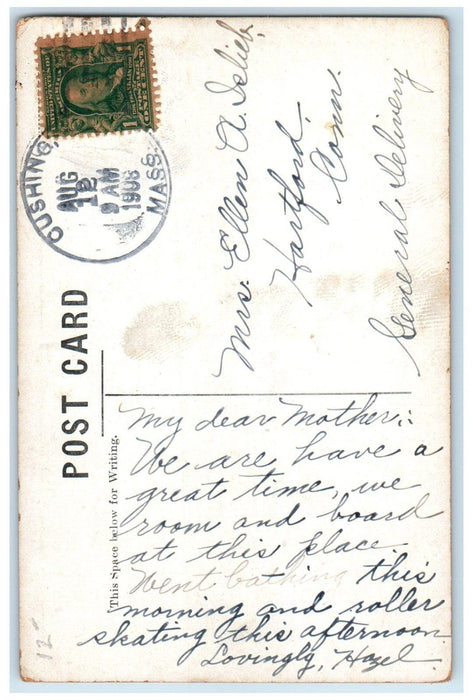 CUSHING, MASS.
AUG
12
9 AM
1908
POST CARD
This Space below for Writing.
Mrs. Ellen A. Isleib,
Hartford,
Conn.
General Delivery
My dear Mother,:
We are have a
great time, we
room and board
at this place.
Went bathing this
morning and roller
skating this afternoon
Lovingly, Hazel
12